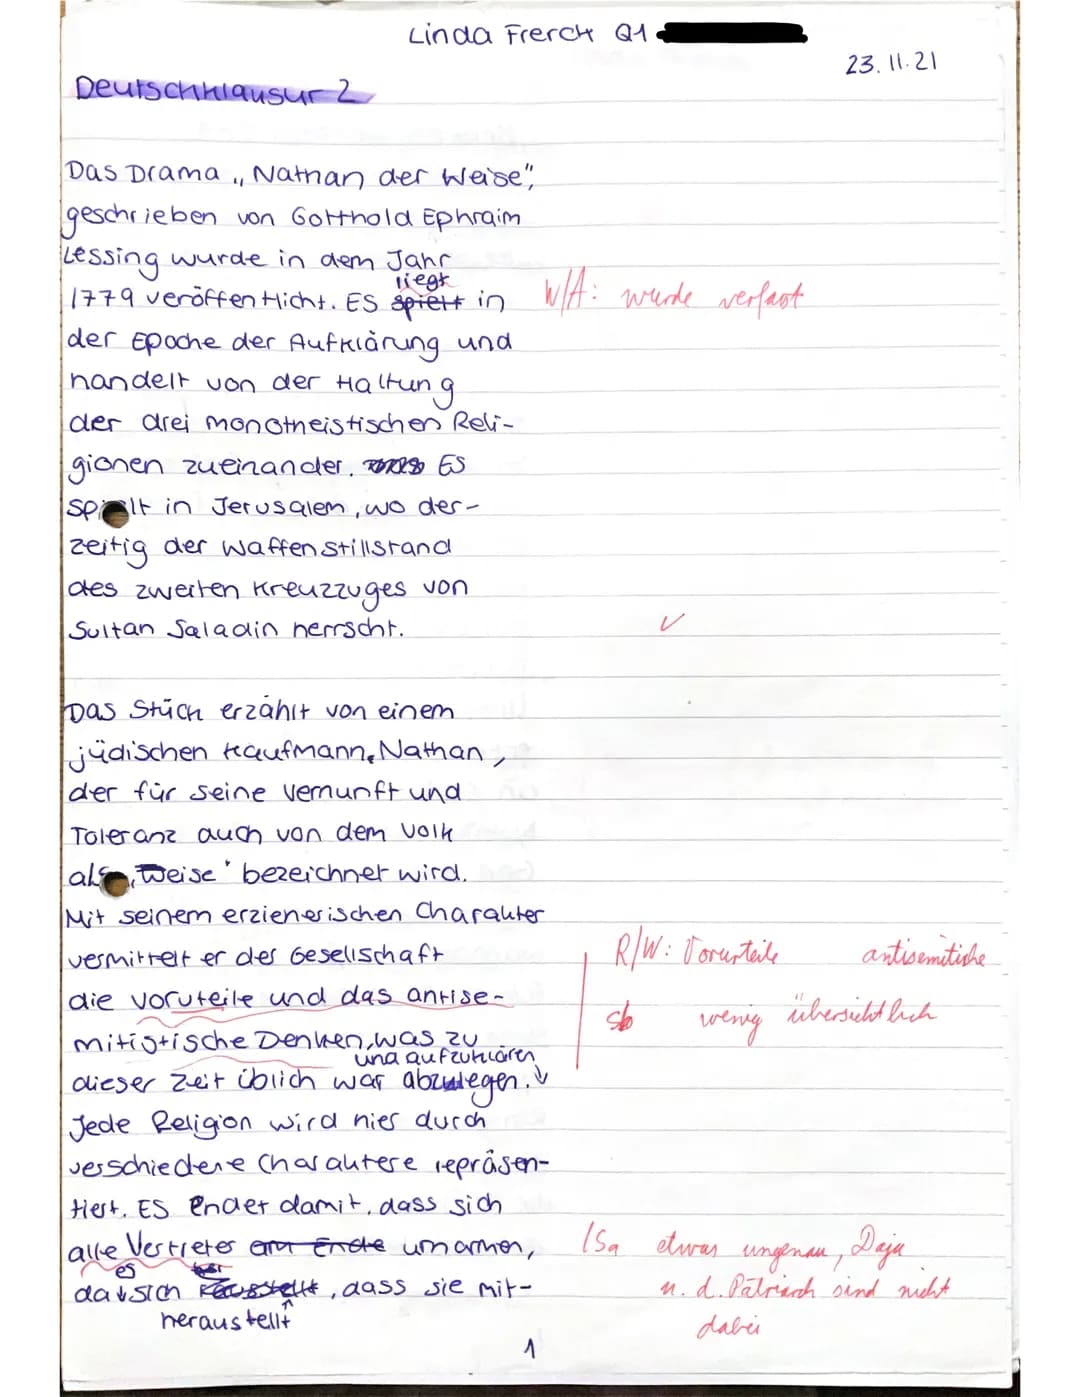 Linda Frerck Q1
23.11.21
Deutschklausur 2
Das Drama „Nathan der Weise",
geschrieben von Gotthold Ephraim
Lessing wurde in dem Jahr
liegt
1779 veröffentlicht. Es spielt in
W/A: wurde verfasst
der Epoche der Aufklärung und
handelt von der Haltung
der drei monotheistischen Reli-
gionen zueinander. Es
spielt in Jerusalem, wo der-
zeitig der Waffenstillstand
des zweiten Kreuzzuges von
Sultan Saladin herrscht. ✓
Das Stück erzählt von einem
jüdischen Kaufmann, Nathan,
der für seine Vernunft und
Toleranz auch von dem Volk
als ‚Weise' bezeichnet wird.
Mit seinem erzieherischen Charakter
vermittelt er der Gesellschaft
R/W: Vorurteile antisemitische
die voruteile und das antise-
Sb wenig übersichtlich
mitistische Denken, was zu
und aufzuklären
dieser Zeit üblich war abzulegen.
Jede Religion wird hier durch
verschiedene Charaktere repräsen-
tiert. Es endet damit, dass sich
alle Vertreter am Ende umarmen,
/Sa etwas ungenau, Daja
es
da sich rausstellt, dass sie mit-
u. d. Patriarch sind nicht
herausstellt
dabei
1